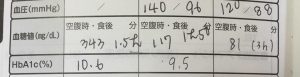 血圧(mmHg) / 140/96 120/88
空腹時・食後 分 空腹時・食後 分 空腹時・食後 分
血糖値(mg/dL) 343 1.5h 117 1h50 81 (3h)
HbA1c(%) 10.6 9.5